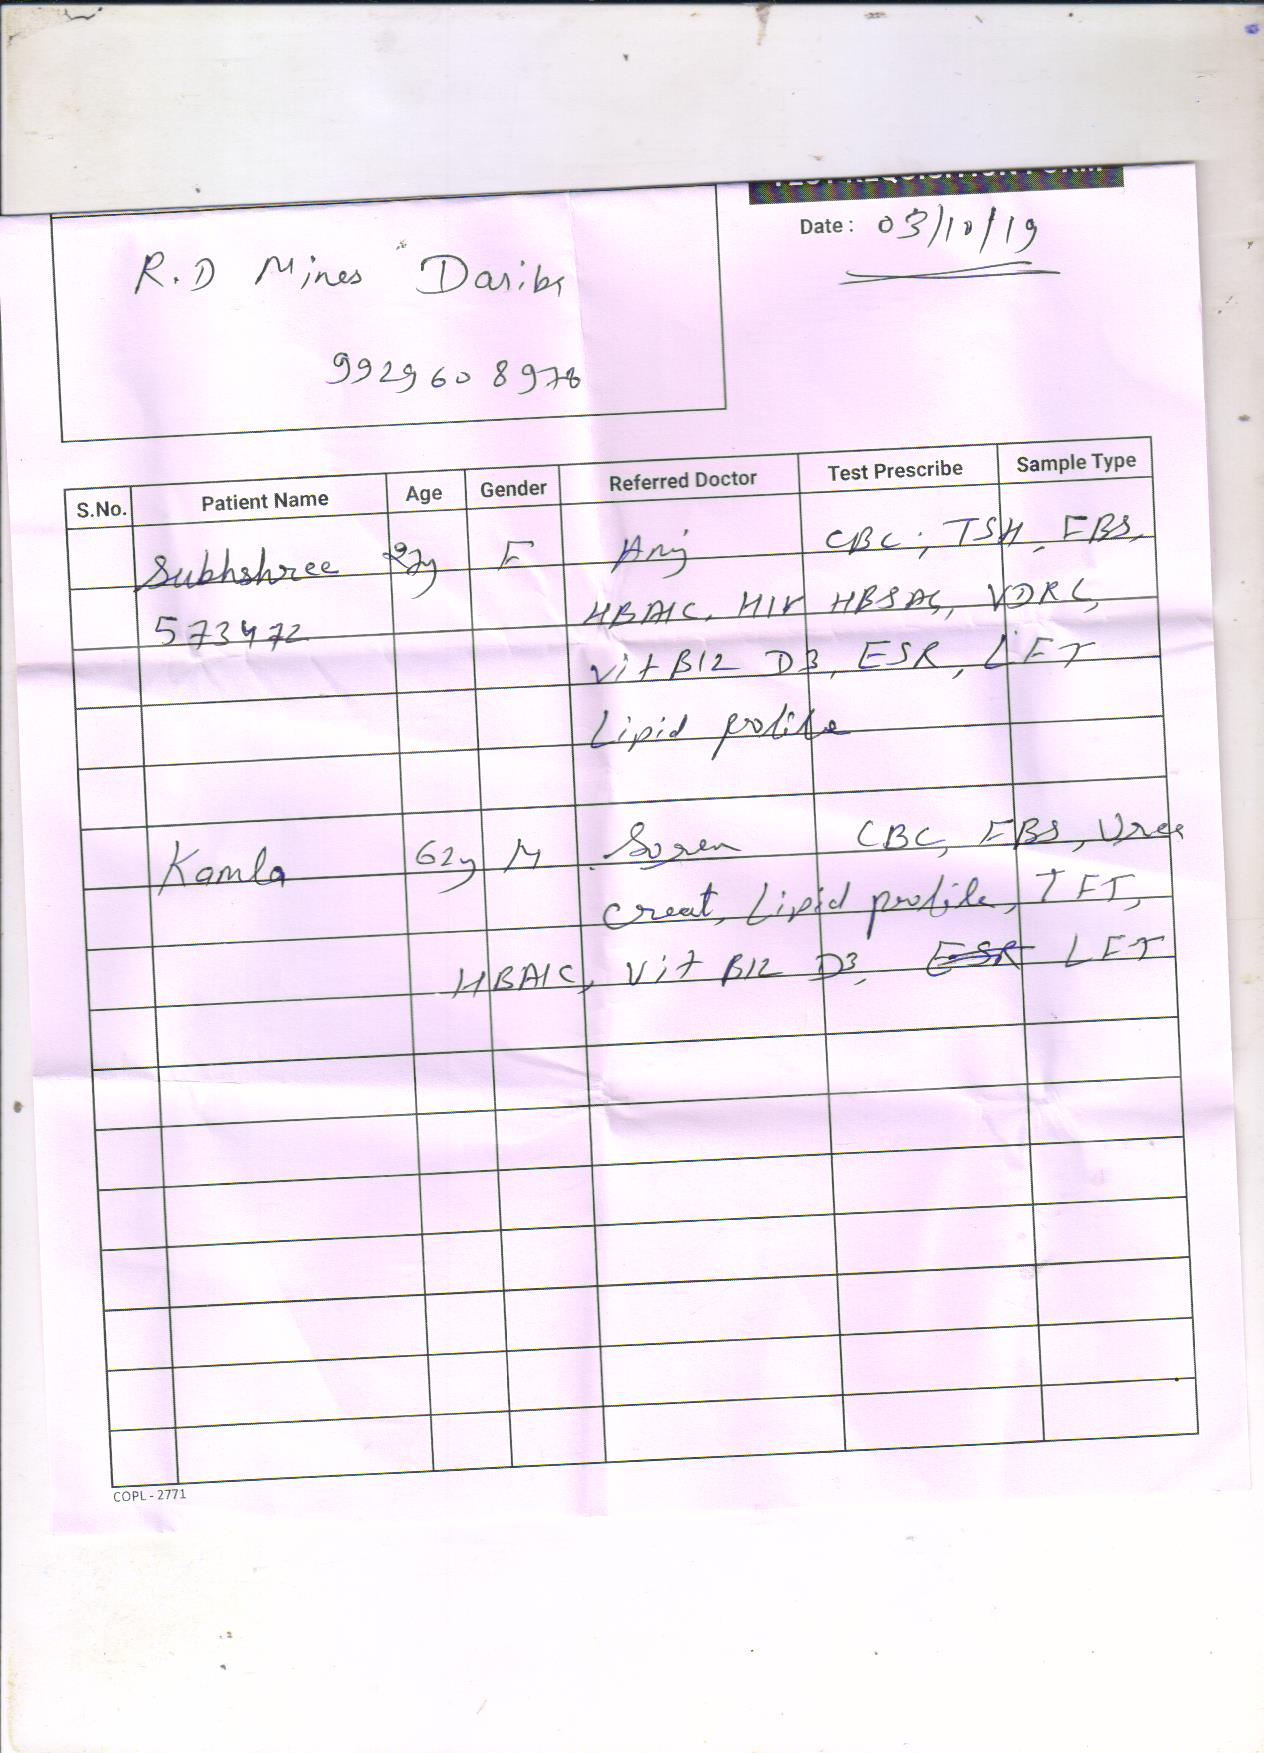 TEST REQUISITION FORM
Date : 03/10/19
R.D Mines Dariba
9929608978
S.No. Patient Name Age Gender Referred Doctor Test Prescribe Sample Type
Subhshree 27y F CBC, TSH, FBS,
573472 HBA1C, HIV HBSAG, VDRL,
Vit B12 D3, ESR, LFT
Lipid profile
Kamla 62y M CBC, FBS, Urea
Creat, Lipid profile, TFT,
HBA1C, Vit B12 D3, ESR LFT
COPL - 2771